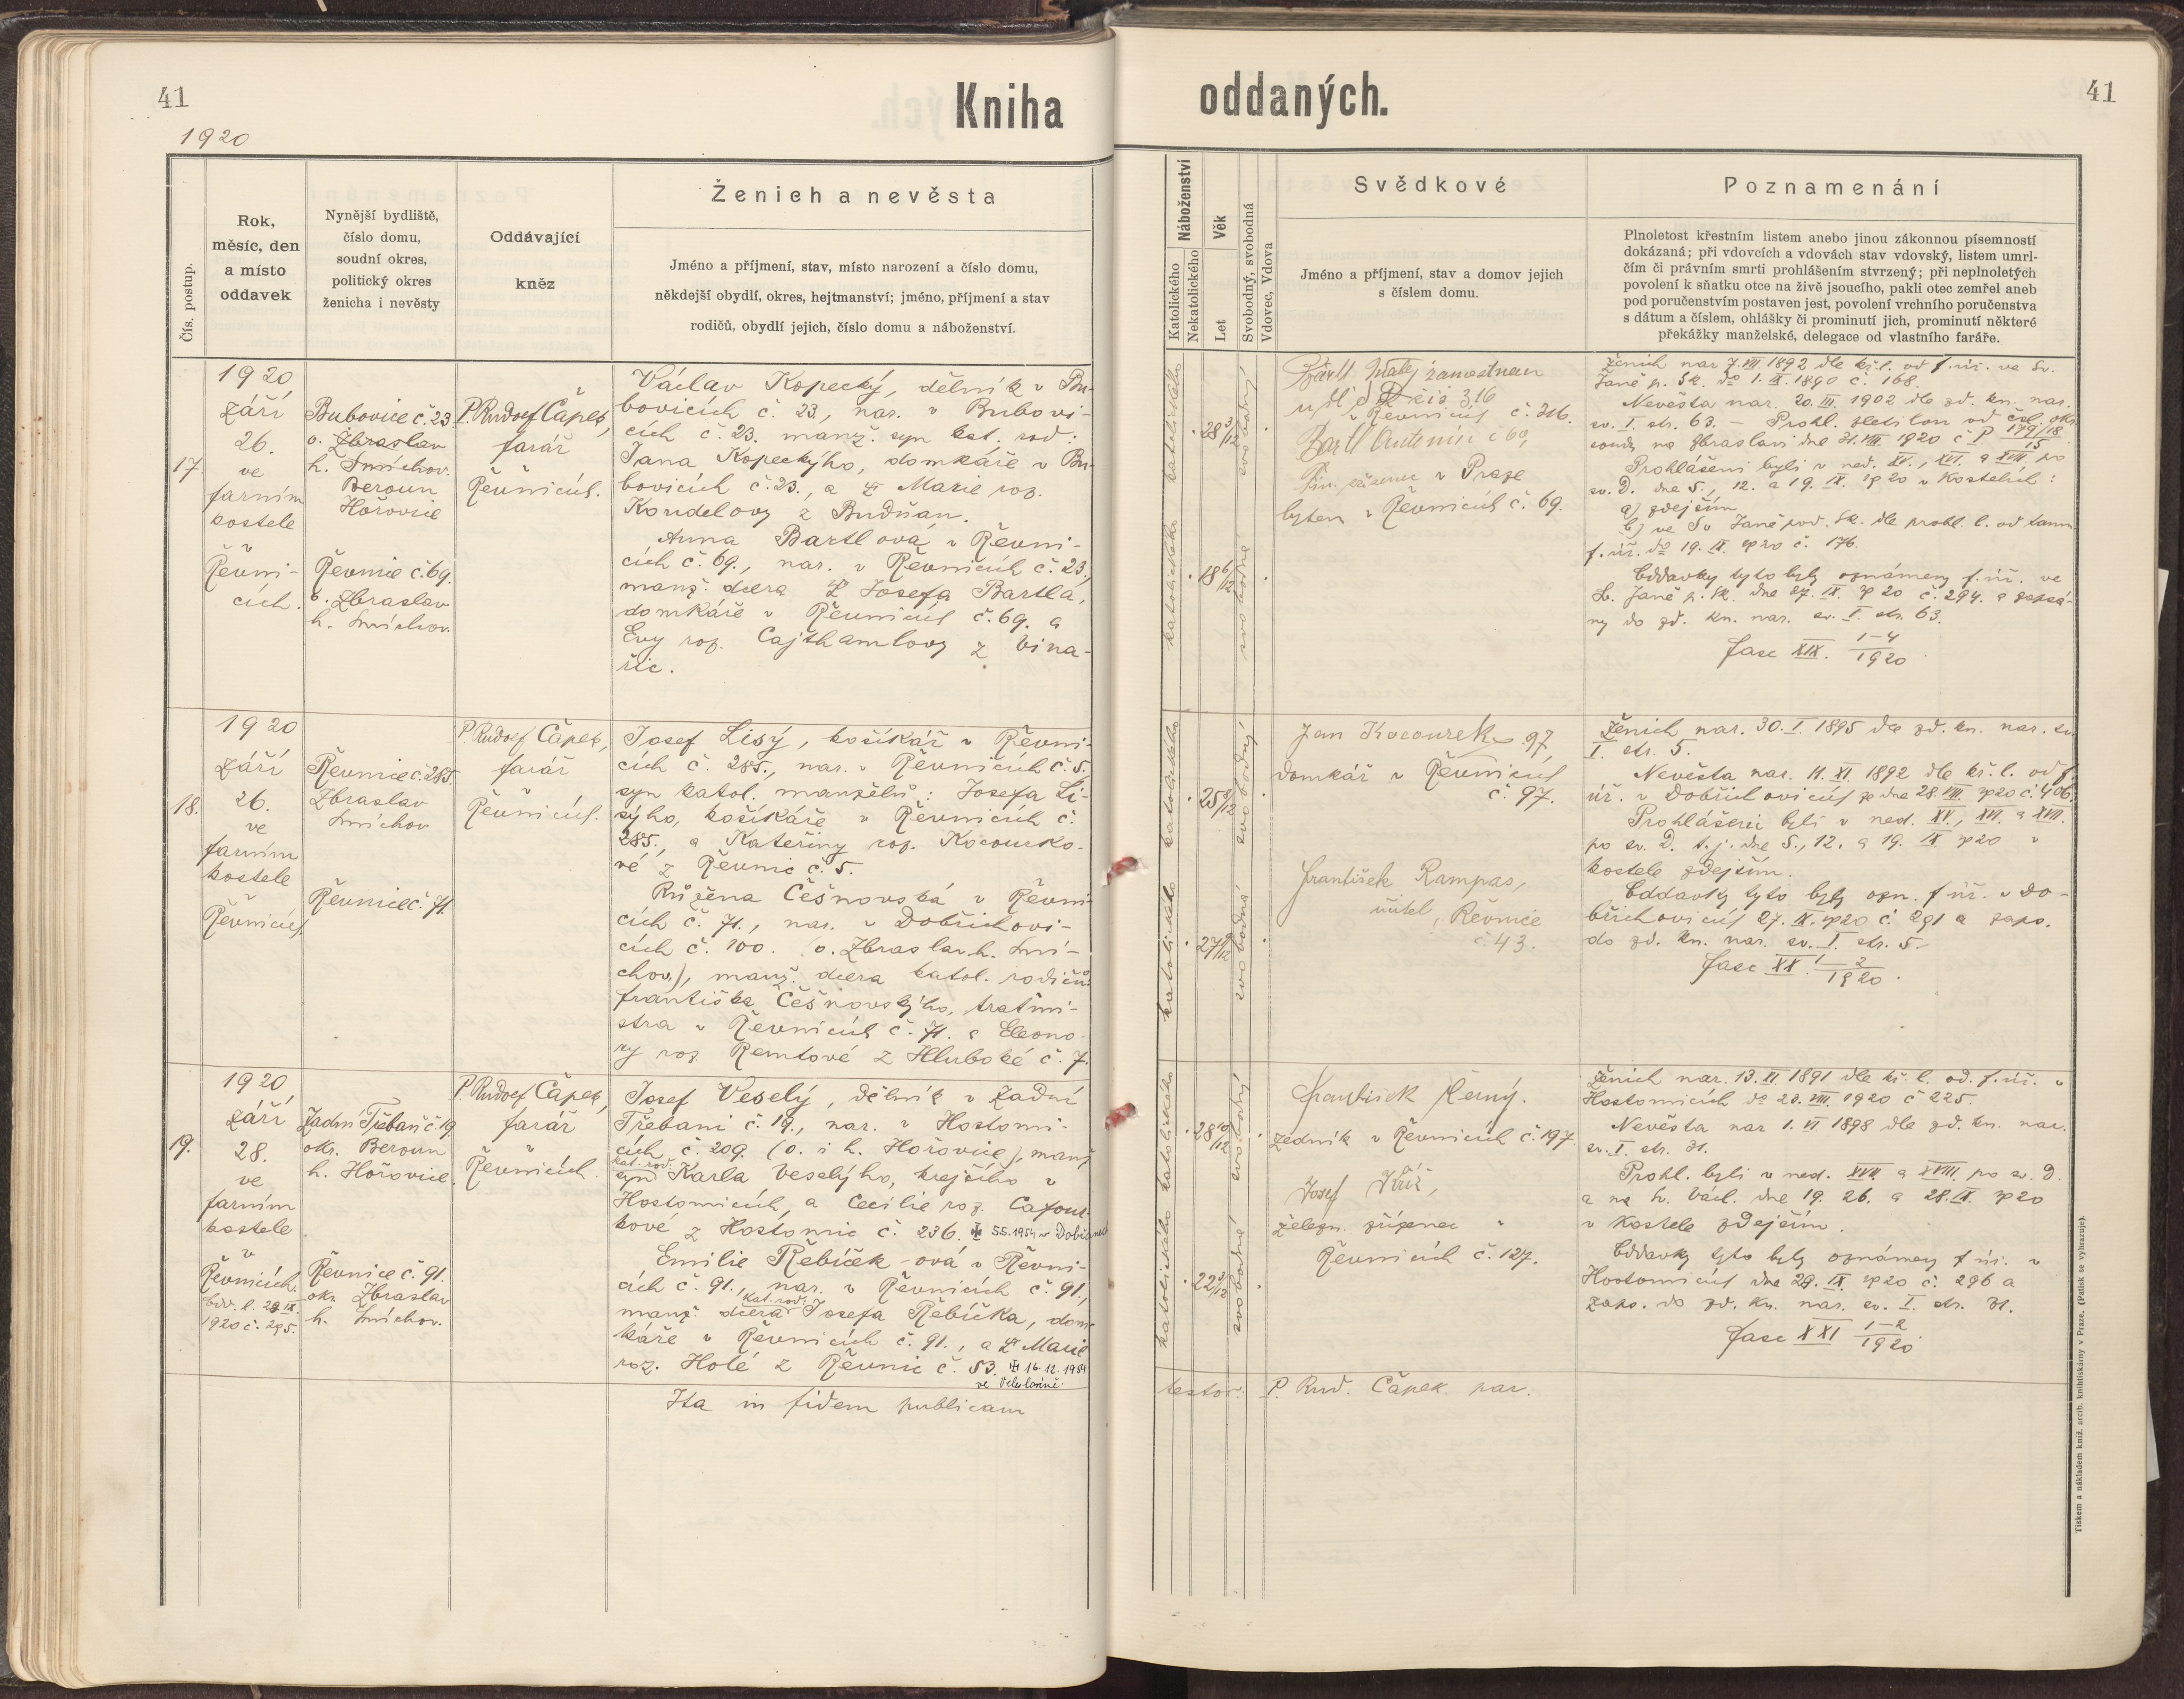 41
Kniha
oddaných.
41
1920
Čís. postup.
Rok,
měsíc, den
a místo
oddavek
Nynější bydliště,
číslo domu,
soudní okres,
politický okres
ženicha i nevěsty
Oddávající
kněz
Ženich a nevěsta
Jméno a příjmení, stav, místo narození a číslo domu,
někdejší obydlí, okres, hejtmanství; jméno, příjmení a stav
rodičů, obydlí jejich, číslo domu a náboženství.
Náboženství
Katolického
Nekatolického
Věk
Let
Svobodný, svobodná
Vdovec, Vdova
Svědkové
Jméno a příjmení, stav a domov jejich
s číslem domu.
Poznamenání
Plnoletost křestním listem anebo jinou zákonnou písemností
dokázaná; při vdovcích a vdovách stav vdovský, listem umrl-
čím či právním smrti prohlášením stvrzený; při neplnoletých
povolení k sňatku otce na živě jsoucího, pakli otec zemřel aneb
pod poručenstvím postaven jest, povolení vrchního poručenstva
s dátum a číslem, ohlášky či prominutí jich, prominutí některé
překážky manželské, delegace od vlastního faráře.
17.
1920
září
26.
ve
farním
kostele
v
Řevni-
cích.
Bubovice č. 23
o. Zbraslav
h. Smíchov.
Beroun
Hořovice
Řevnice č. 69.
o. Zbraslav
h. Smíchov.
P. Rudolf Čapek,
farář
v
Řevnicích.
Václav Kopecký, dělník v Bu-
bovicích č. 23, nar. v Bubovi-
cích č. 23. manž. syn kat. rod:
Jana Kopeckýho, domkáře v Bu-
bovicích č. 23., a Marie roz.
Koudelovy z Budňan.
Anna Bartlová v Řevni-
cích č. 69., nar. v Řevnicích č. 23,
manž. dcera Josefa Bartla,
domkáře v Řevnicích č. 69. a
Evy roz. Cajthamlovy z Vina-
řic.
katolického
katolického
28 3/12
18 6/12
svobodný
svobodná
Bartl Matěj zamestnan
316
v Řevnicích č. 316.
Bartl Antonín č 69,
fin. zřízenec v Praze
bytem v Řevnicích č. 69.
Ženich nar. 7. VII 1892 dle kř. l. od f. úř. ve Sv.
Janě p. Sk. č. 168.
Nevěsta nar. 20. III. 1902 dle zd. kn. nar.
sv. I. str. 63. – Prohl. zletilou od čsl. okr.
soudu na Zbraslavi dne 31. VIII 1920 č. P 179/18
15
Prohlášeni byli v ned. XV., XVI. a XVII. po
sv. D. dne 5., 12. a 19. IX. 1920 v kostelích:
a) zdejším
b) ve Sv Janě pod. Sk. dle prohl. l. od tamn
f. úř. do 19. IX. 1920 č. 176.
Oddavky tyto byly oznámeny f. úř. ve
Sv. Janě p. Sk. dne 27. IX. 1920 č. 294. a zapsá-
ny do zd. kn. nar. sv. I. str. 63.
fasc XIX. 1–4
1920
18.
1920
září
26.
ve
farním
kostele
v
Řevnicích.
Řevnice č. 285.
Zbraslav
Smíchov
Řevnice č. 71.
P. Rudolf Čapek,
farář
v
Řevnicích.
Josef Lisý, košíkář v Řevni-
cích č. 285., nar. v Řevnicích č. 5.
syn katol. manželů: Josefa Li-
sýho, košíkáře v Řevnicích č.
285., a Kateřiny roz. Kocourko-
vé z Řevnic č. 5.
Růžena Češnovská v Řevni-
cích č. 71., nar. v Dobřichovi-
cích č. 100. (o. Zbraslav h. Smí-
chov), manž. dcera katol. rodičů:
Františka Češnovskýho, traťmi-
stra v Řevnicích č. 71. a Eleono-
ry roz. Remtové z Hluboké č. 7.
katolického
katolického
25 8/12
27 /12
svobodný
svobodná
Jan Kocourek 97,
domkář v Řevnicích
č. 97.
František Rampas,
učitel, Řevnice
č. 43.
Ženich nar. 30. I. 1895 dle zd. kn. nar. sv.
I. str. 5.
Nevěsta nar. 11. XI. 1892 dle kř. l. od f.
úř. v Dobřichovicích ze dne 28. VIII. 1920 č. 406.
Prohlášeni byli v ned. XV., XVI. a XVII.
po sv. D. t. j. dne 5., 12. a 19. IX. 1920 v
kostele zdejším.
Oddavky tyto byly ozn. f. úř. v Do-
břichovicích 27. IX. 1920 č. 291 a zaps.
do zd. kn. nar. sv. I. str. 5.
fasc XX. 1–2
1920.
19.
1920
září
28.
ve
farním
kostele
v
Řevnicích.
Odd. l. 29 IX.
1920 č. 295.
Zadní Třebaň č. 19.
okr. Beroun
h. Hořovice.
Řevnice č. 91.
okr. Zbraslav
h. Smíchov.
P. Rudolf Čapek,
farář
v
Řevnicích.
Josef Veselý, dělník v Zadní
Třebani č. 19., nar. v Hostomi-
cích č. 209. (o. i h. Hořovice), manž
kat. rod.
syn Karla Veselýho, krejčího v
Hostomicích, a Cecilie roz. Cafour-
kové z Hostomic č. 236. 5.5.1954 v
Emilie Řebíček-ová v Řevni-
cích č. 91., nar. v Řevnicích č. 91.,
kat. rod.
manž. dcera Josefa Řebíčka, dom-
káře v Řevnicích č. 91., a Marie
roz. Holé z Řevnic č. 53. 16.12.1954
ve
Ita in fidem publicam
katolického
katolického
28 10/12
22 3/12
svobodný
svobodná
František Černý.
zedník v Řevnicích č. 197
Josef Kříž,
železn. zřízenec v
Řevnicích č. 127.
Ženich nar. 13. XI. 1891 dle kř. l. od. f. úř. v
Hostomicích do 23. VIII. 1920 č 225.
Nevěsta nar 1. VI 1898 dle zd. kn. nar.
sv. I. str. 31.
Prohl. byli v ned. XVII. a XVIII. po sv. D.
a na sv. Václ. dne 19. 26. a 28. IX. 1920
v kostele zdejším.
Oddavky tyto byly oznámeny f úř. v
Hostomicích dne 29. IX. 1920 č. 296 a
zaps. do zd. kn. nar. sv. I. str. 31.
fasc XXI 1–2
1920.
testor: P. Rud. Čapek. par.
Tiskem a nákladem kníž. arcib. knihtiskárny v Praze. (Patisk se vyhrazuje).